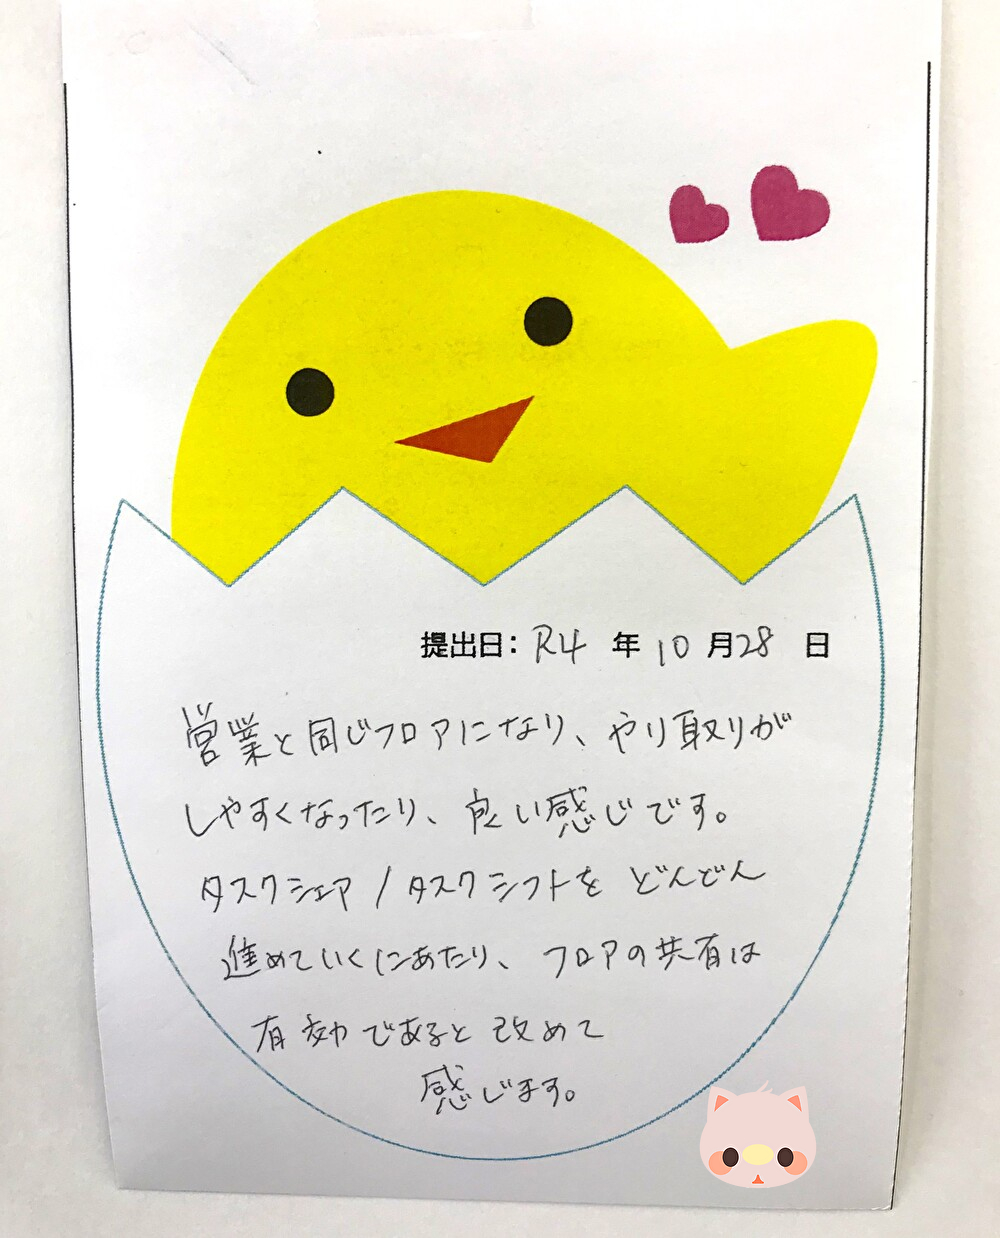 提出日: R4 年 10 月 28 日
営業と同じフロアになり、やり取りが
しやすくなったり、良い感じです。
タスクシェア/タスクシフトを どんどん
進めていくにあたり、フロアの共有は
有効であると改めて
感じます。